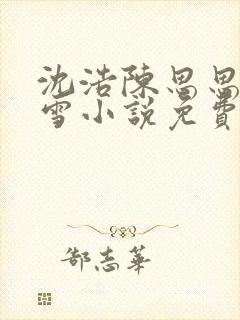 沈浩陳思思
雪小說免費
郜志華